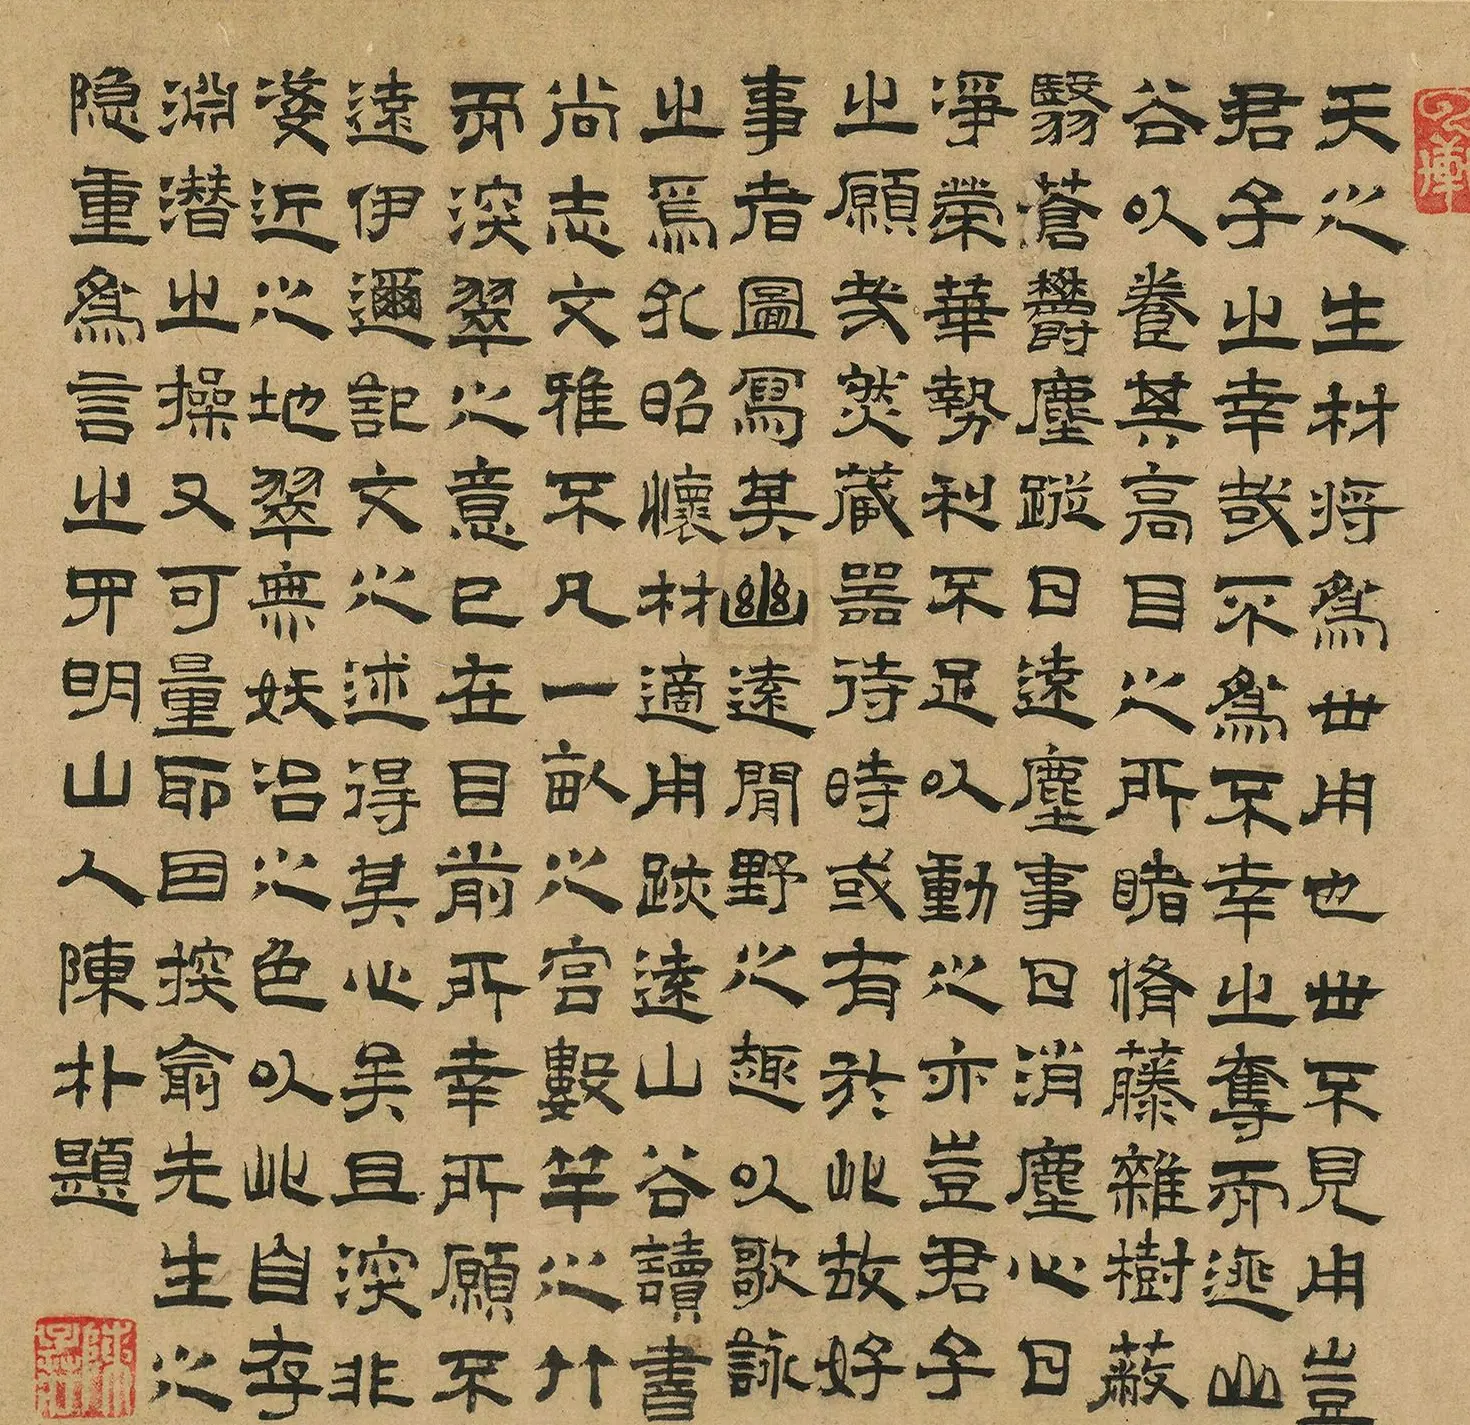 天之生材将為世用也世不見用豈
君子之幸哉不為不幸之奪而逃山
谷以養其高目之所睹脩藤雜樹蔽
翳蒼欝塵蹤日遠塵事日消塵心日
淨榮華勢利不足以動之亦豈君子
之願哉然藏器待時或有於此故好
事者圖寫其幽遠閒野之趣以歌詠
之焉孔昭懷材適用跡遠山谷讀書
尚志文雅不凡一畝之宮數竿之竹
而深翠之意已在目前所幸所願不
遠伊邇記文之述得其心矣且深非
淺近之地翠無妖冶之色以此自存
淵潛之操又可量耶因掞俞先生之
隱重為言之丹明山人陳朴題